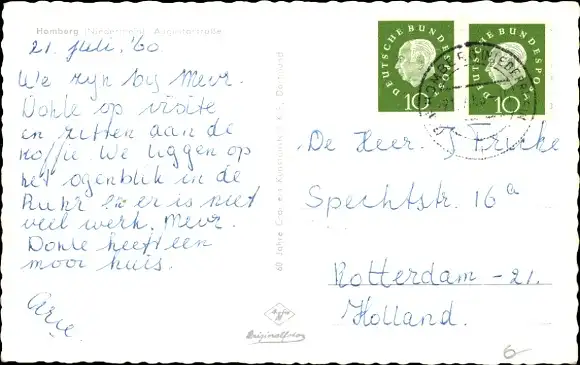 Homberg (Niederrhein) Augustastraße
21. Juli, '60
We zyn by Mevr.
Dohle op visite
en zitten aan de
koffie. We liggen op
het ogenblik in de
Ruhr en er is niet
veel werk. Mevr.
Dohle heeft een
mooi huis.
Arie
DEUTSCHE BUNDESPOST
10
DEUTSCHE BUNDESPOST
10
De Heer. J Fricke
Spechtstr. 16a
Rotterdam - 21.
Holland.
60 Jahre
Dortmund
Agfa
Originalfoto
6